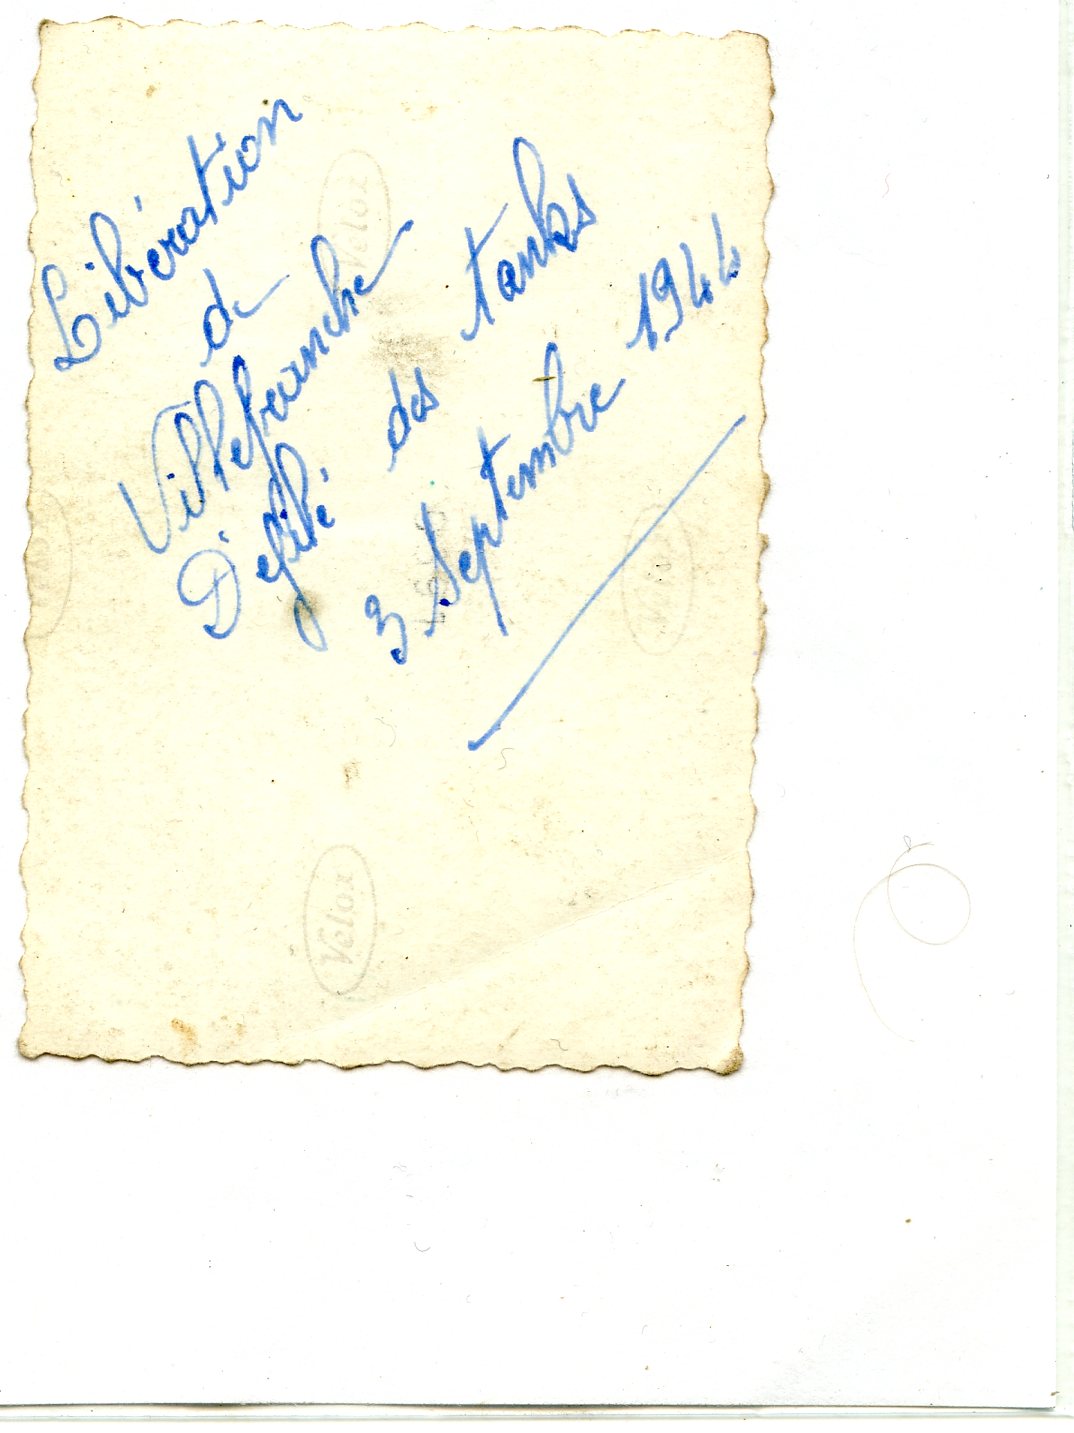 Libération
de
Villefranche
Défilé des tanks
3 Septembre 1944
Velox
Velox
Velox